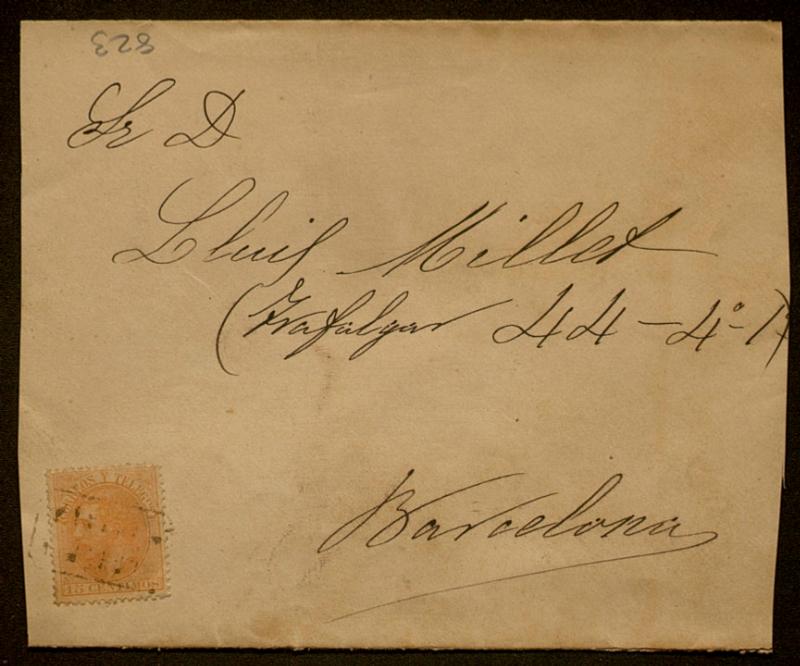 823
Sr D
Lluis Millet
(Trafalgar 44-4º-1ª)
Barcelona
CORREOS Y TELEGROS
15 CENTIMOS